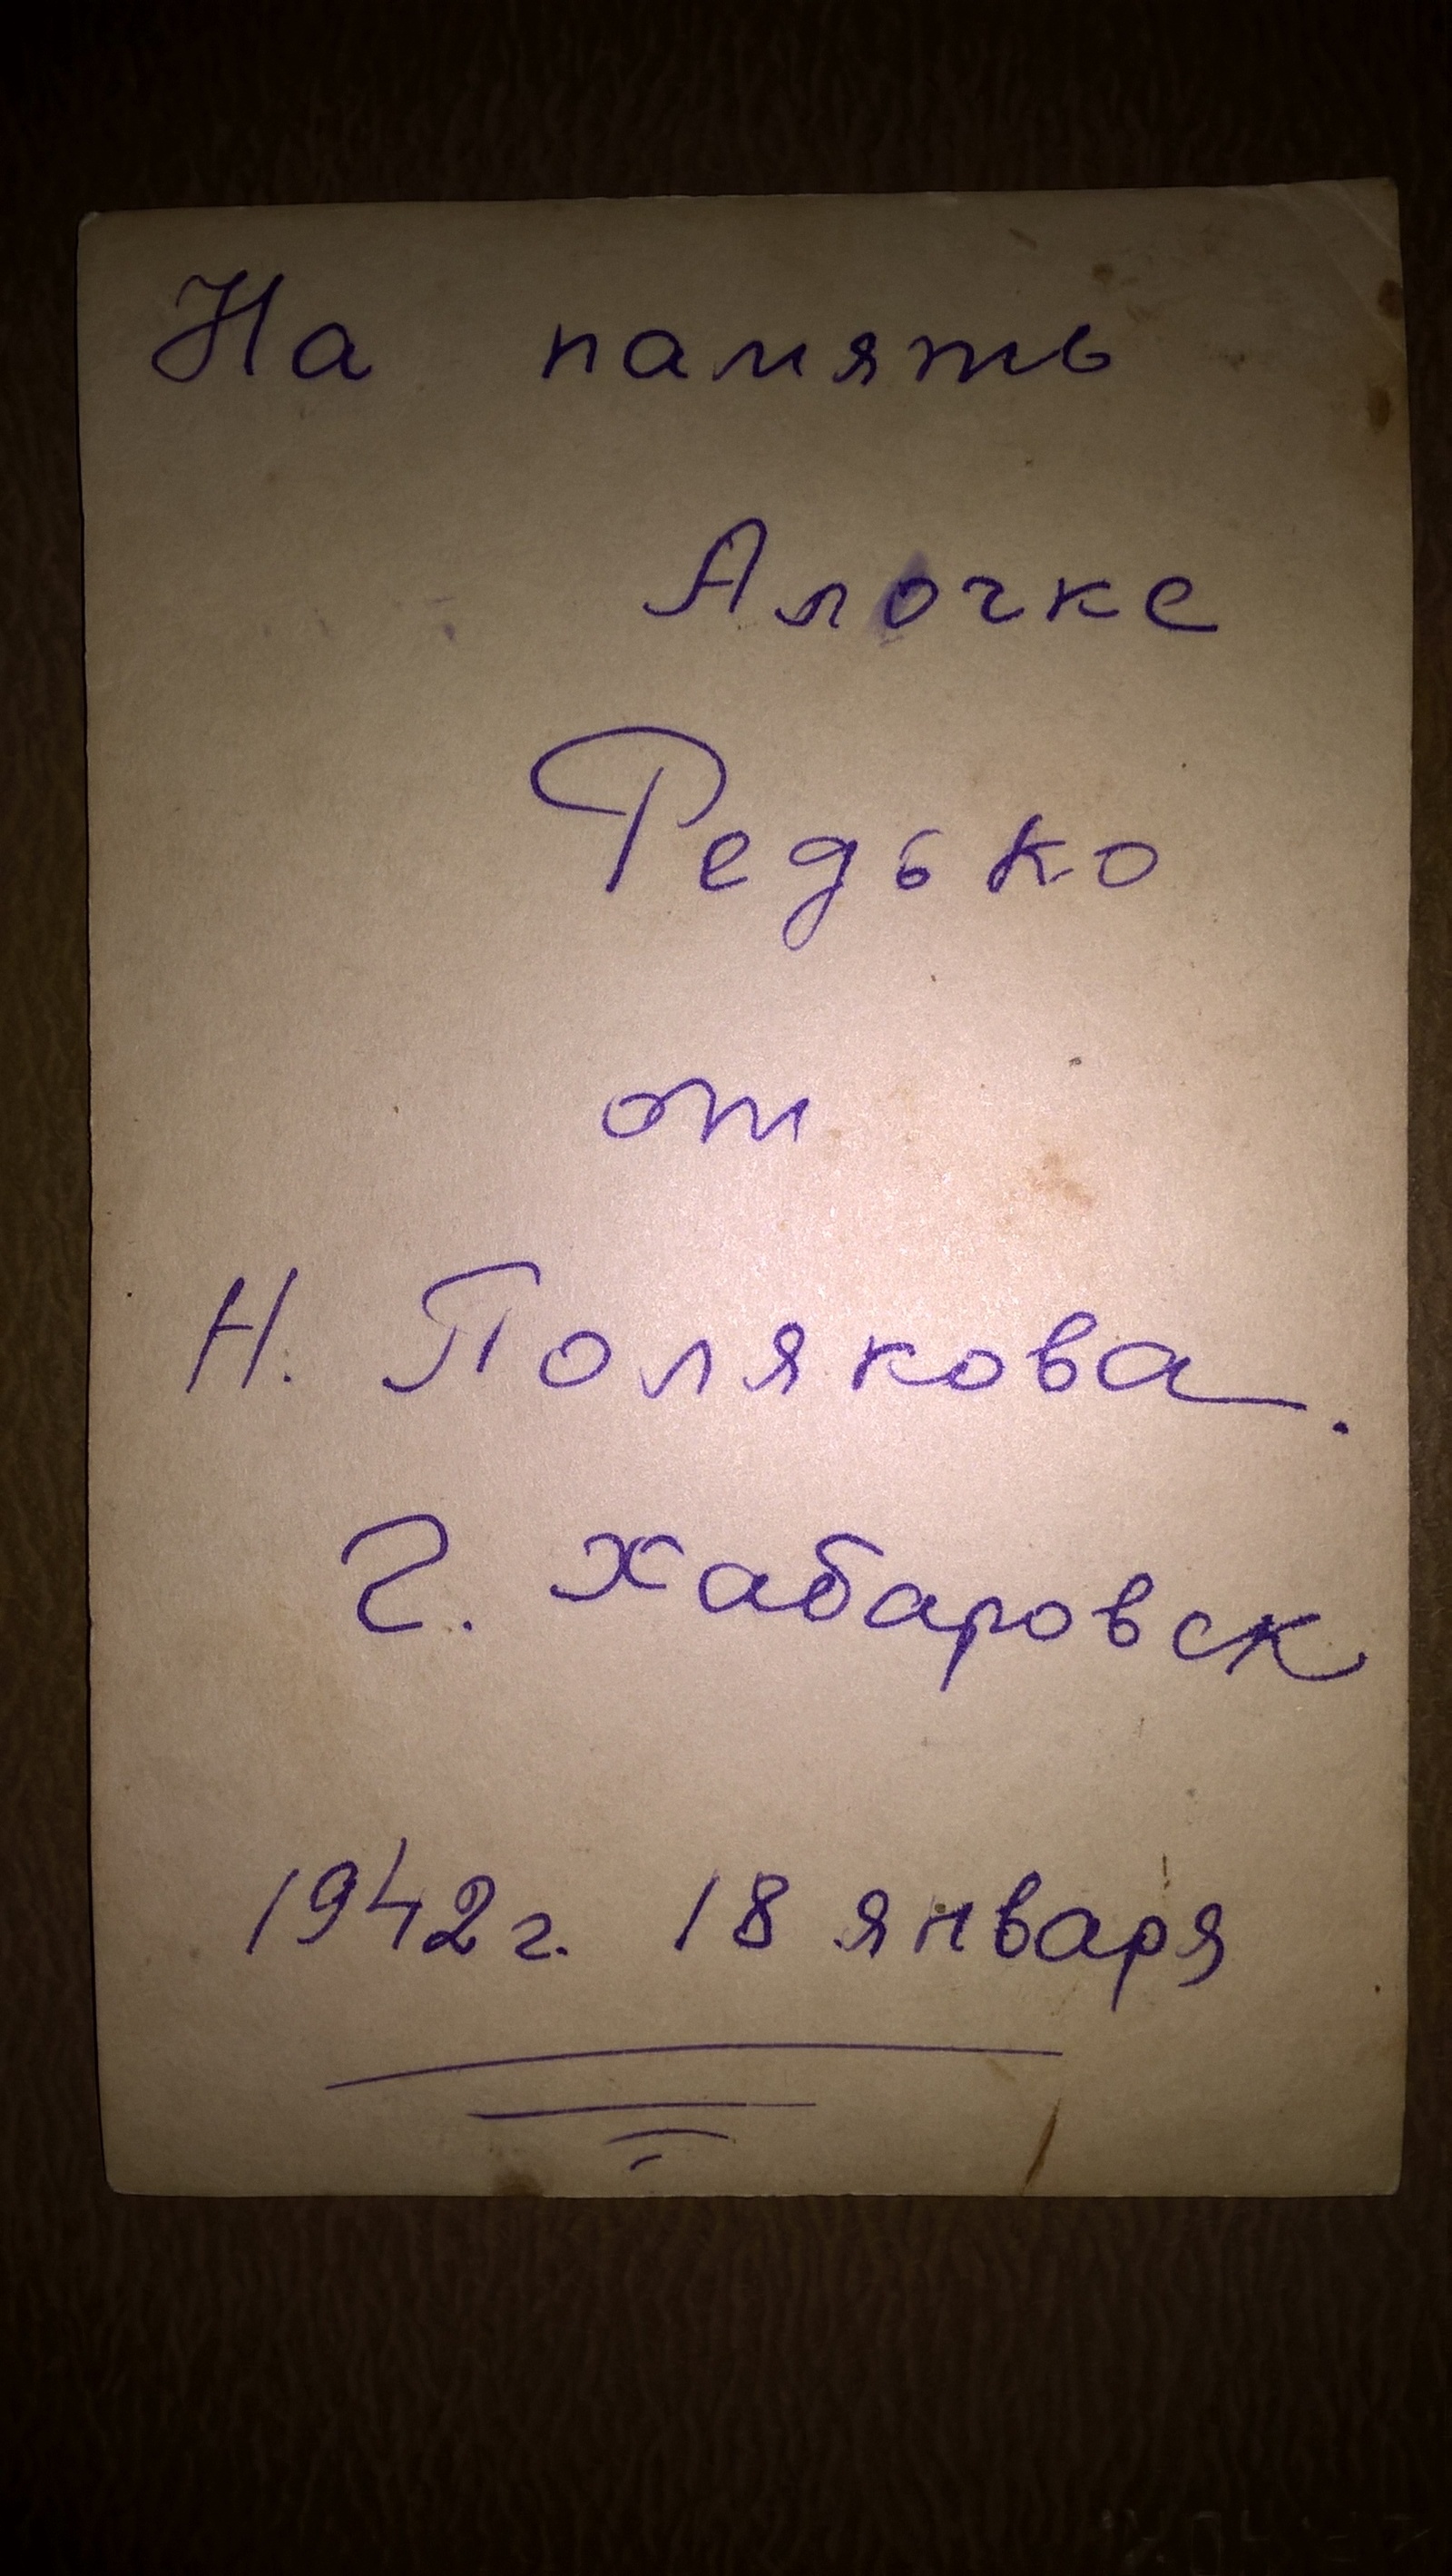 На память
Алочке
Редько
от
Н. Полякова.
г. Хабаровск
1942 г. 18 января